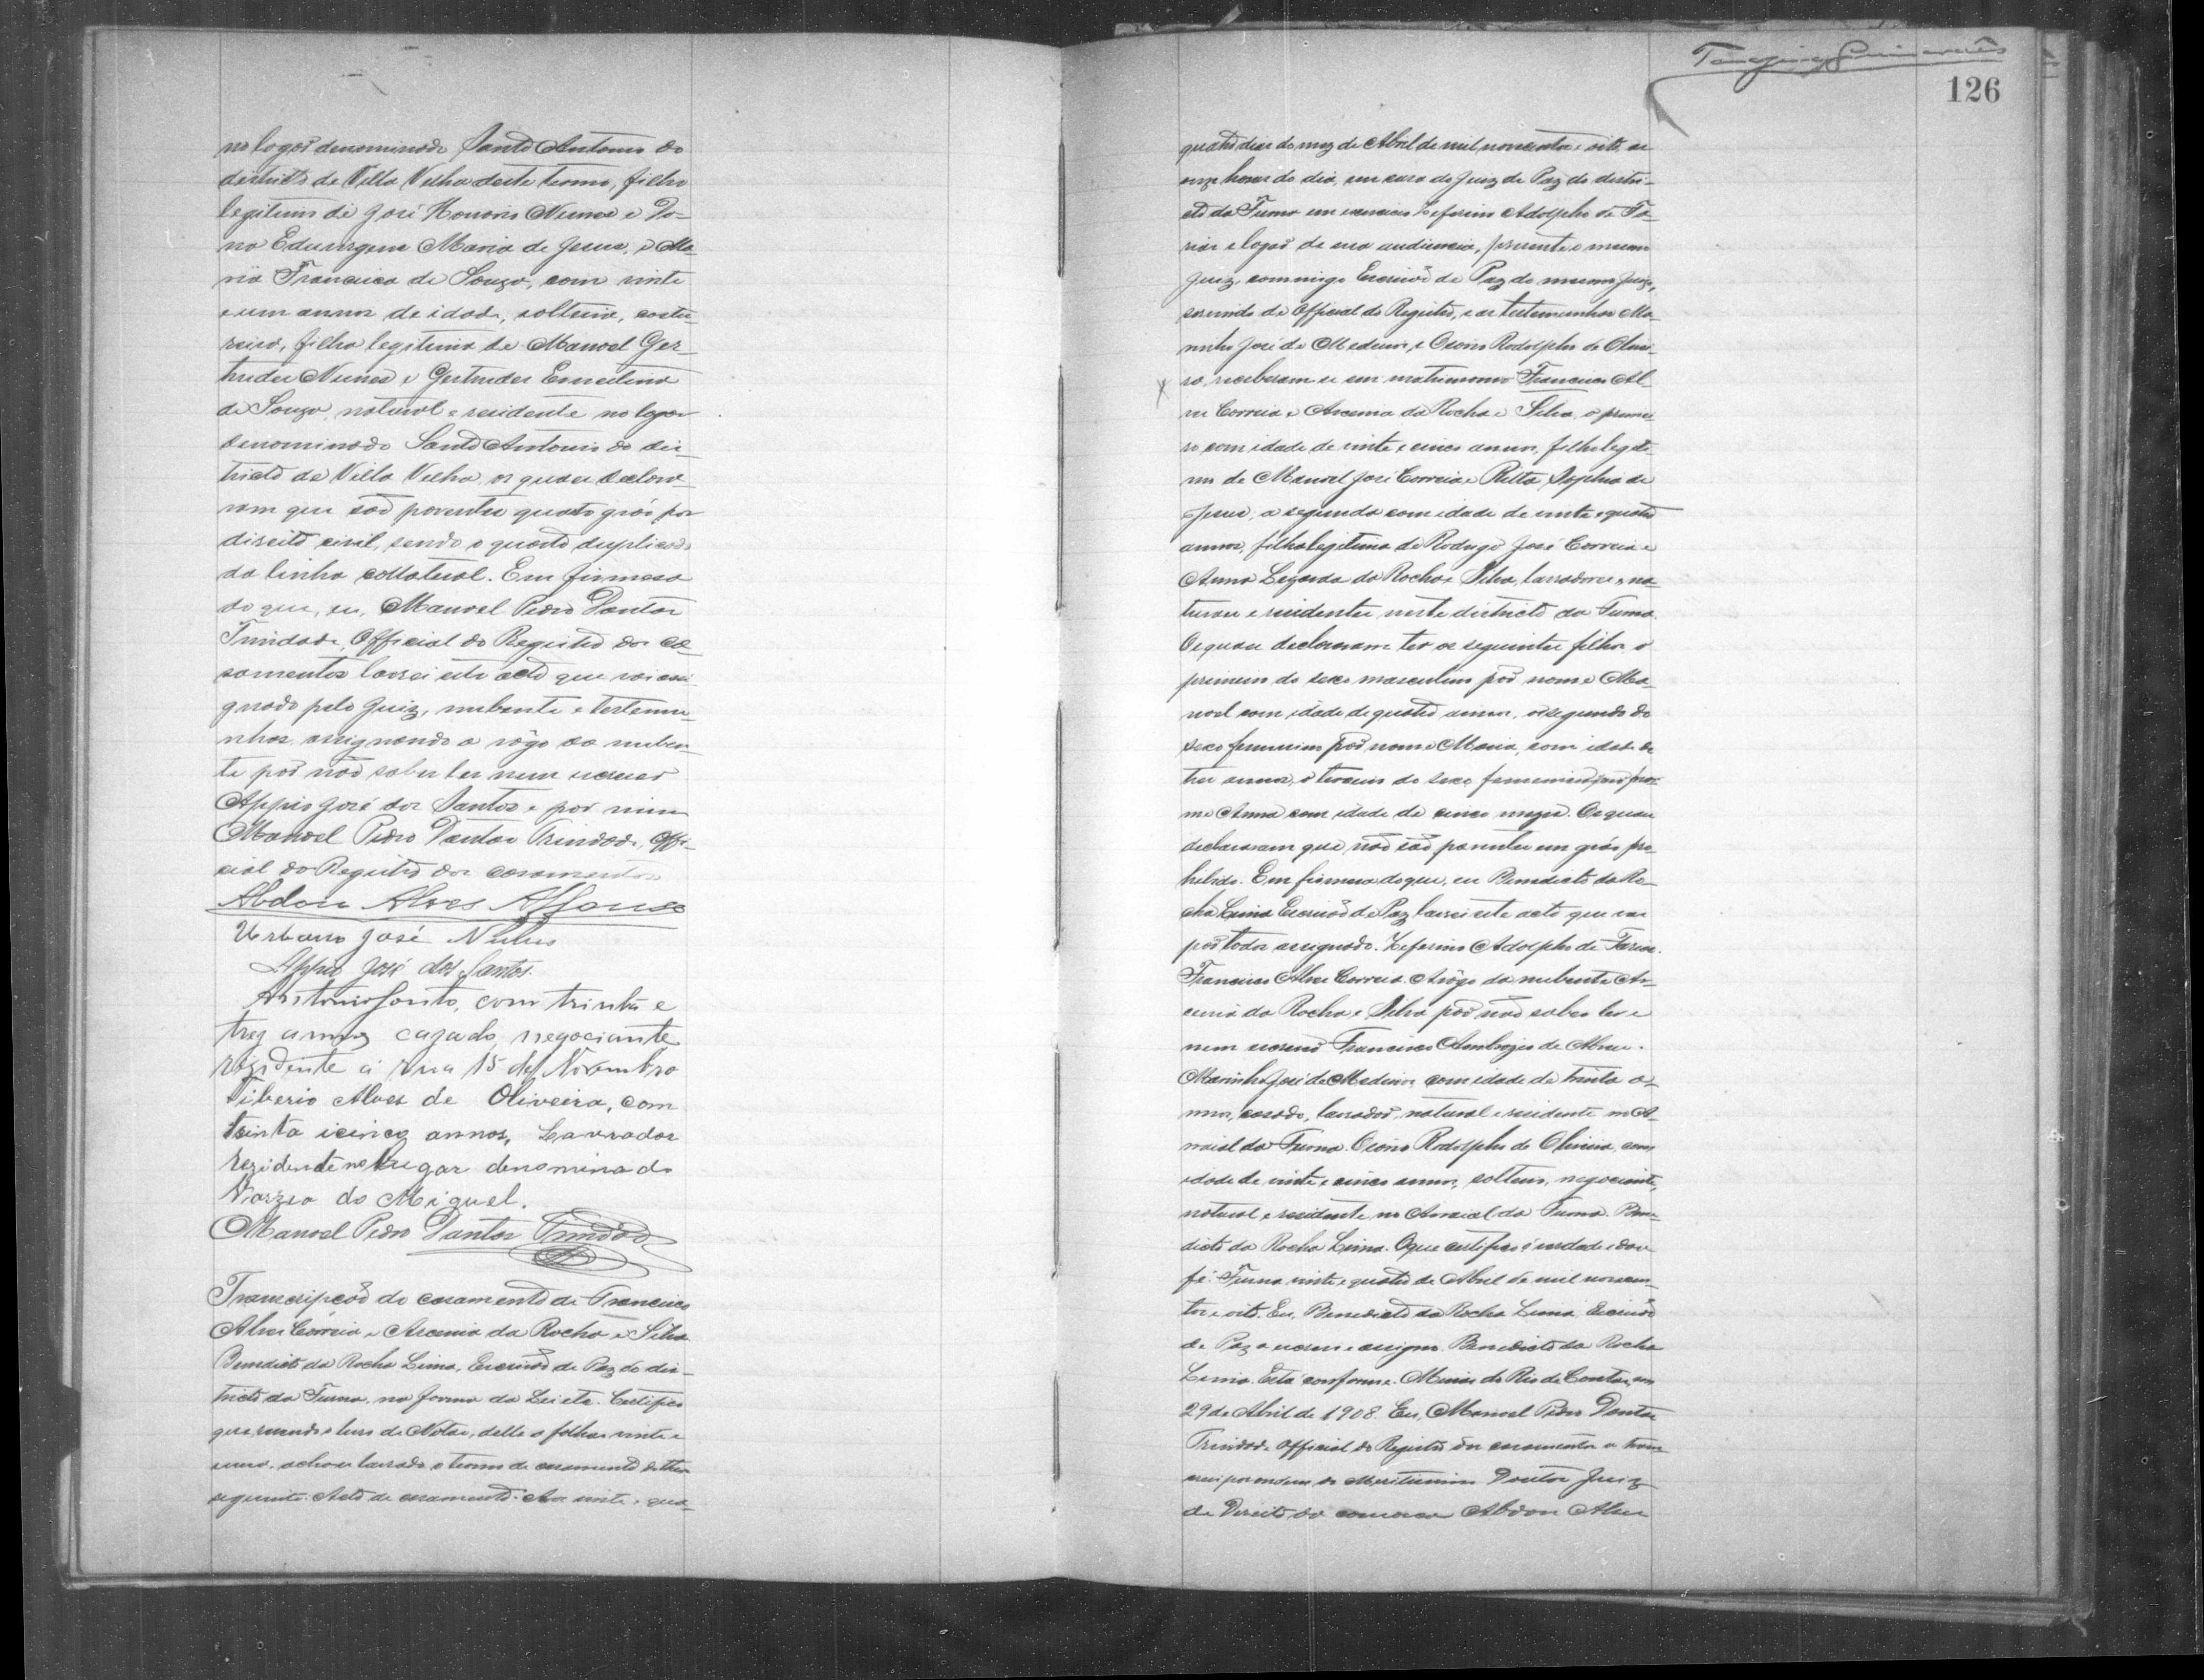 no logar denominado Santo Antonio do
districto de Villa Velha deste termo, filho
legitimo de José Honorio Nunes e Do-
na Eduvirgens Maria de Jesus, e Ma-
ria Francisca de Souza, com vinte
e um annos de idade, solteira, costu-
reira, filha legitima de Manoel Ger-
trudes Nunes e Gertrudes Ermelina
de Souza, natural e residente no logar
denominado Santo Antonio do dis-
tricto de Villa Velha, os quaes declara-
ram que são parentes quarto gráo por
direito civil, sendo o quarto duplicado
da linha collateral. Em firmesa
do que, eu, Manoel Pedro Dantas
Trindade, Official do Registro dos ca-
samentos lavrei este acto que vai assi-
gnado pelo Juiz, nubente e testemu-
nhas, assignando a rôgo da nuben-
te por não saber ler nem escrever
Appio José dos Santos e por mim
Manoel Pedro Dantas Trindade, Offi-
cial do Registro dos casamentos
Abdon Alves Affonso
Urbano José Nunes
Appio José dos Santos.
Antonio Souto, com trinta e
trez annos cazado, negociante
rezidente á rua 15 de Novembro
Tiberio Alves de Oliveira, com
trinta icinco annos, Lavrador
rezidente no lugar denominado
Varzea do Miguel.
Manoel Pedro Dantas Trindade
Transcripção do casamento de Francisco
Alves Correia e Arcenia da Rocha e Silva
Benedicto da Rocha Lima, Escrivão de Paz do dis-
tricto da Furna, na forma da Lei etc. Certifico
que revendo o livro de Notas, delle a folhas vinte e
uma, achou lavrado o termo de casamento do theor
seguinte: Acto de casamento. Aos vinte e qua-
Guimarães
126
quatro dias do mez de Abril de mil novecentos e oito, as
onze horas do dia, em casa do Juiz de Paz do distri-
cto da Furna em exercicio Zeferino Adolpho de Fa-
rias e logar de sua audiencia, presente o mesmo
Juiz, commigo Escrivão de Paz do mesmo Juizo,
servindo de Official do Registro, e as testemunhas Ma-
rinho José de Medeiros e Osorio Rodolpho de Olivei-
ra, receberam-se em matrimonio Francisco Al-
ves Correia e Arcenia da Rocha e Silva, o primei-
ro com idade de vinte e cinco annos, filho legiti-
mo de Manoel José Correia e Ritta Sophia de
Jesus, a segunda com idade de vinte e quatro
annos, filha legitima de Rodrigo José Correia e
Anna Legarda da Rocha e Silva, lavradores, na-
turaes e residentes neste districto da Furna.
Os quaes declararam ter os seguintes filhos o
primeiro do sexo masculino por nome Ma-
noel com idade de quatro annos, o segundo do
sexo feminino por nome Maria, com idade de
tres annos, o terceiro do sexo feminino por no-
me Anna com idade de cinco mezes. Os quaes
declararam que não são parentes em gráo pro-
hibido. Em firmesa do que, eu Benedicto da Ro-
cha Lima Escrivão de Paz lavrei este acto que vai
por todos assignado. Zeferino Adolpho de Farias.
Francisco Alves Correia. A rôgo da nubente Ar-
cenia da Rocha e Silva por não saber ler e
nem escrever Francisco Ambrozio de Abreu.
Marinho José de Medeiros com idade de trinta a-
nnos, casado, lavrador, natural e residente no Ar-
raial da Furna. Osorio Rodolpho de Oliveira, com
idade de vinte e cinco annos, solteiro, negociante,
natural e residente no Arraial da Furna. Bene-
dicto da Rocha Lima. O que certifico é verdade e dou
fé. Furna vinte e quatro de Abril de mil novecen-
tos e oito. Eu, Benedicto da Rocha Lima Escrivão
de Paz o escrevi e assigno. Benedicto da Rocha
Lima. Está conforme. Minas do Rio de Contas, em
29 de Abril de 1908. Eu, Manoel Pedro Dantas
Trindade Official do Registro dos casamentos o trans-
crevi por ordem do Meritissimo Doutor Juiz
de Direito da comarca Abdon Alves